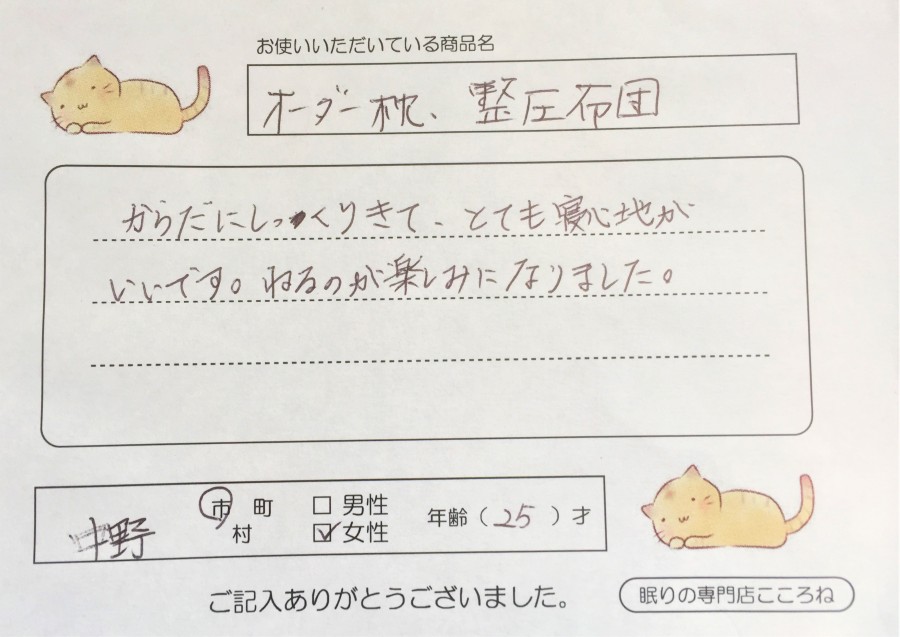 お使いいただいている商品名
オーダー枕、整圧布団
からだにしっくりきて、とても寝心地が
いいです。ねるのが楽しみになりました。
中野
市 町 村
□ 男性
☑ 女性
年齢（25）才
ご記入ありがとうございました。
眠りの専門店こころね